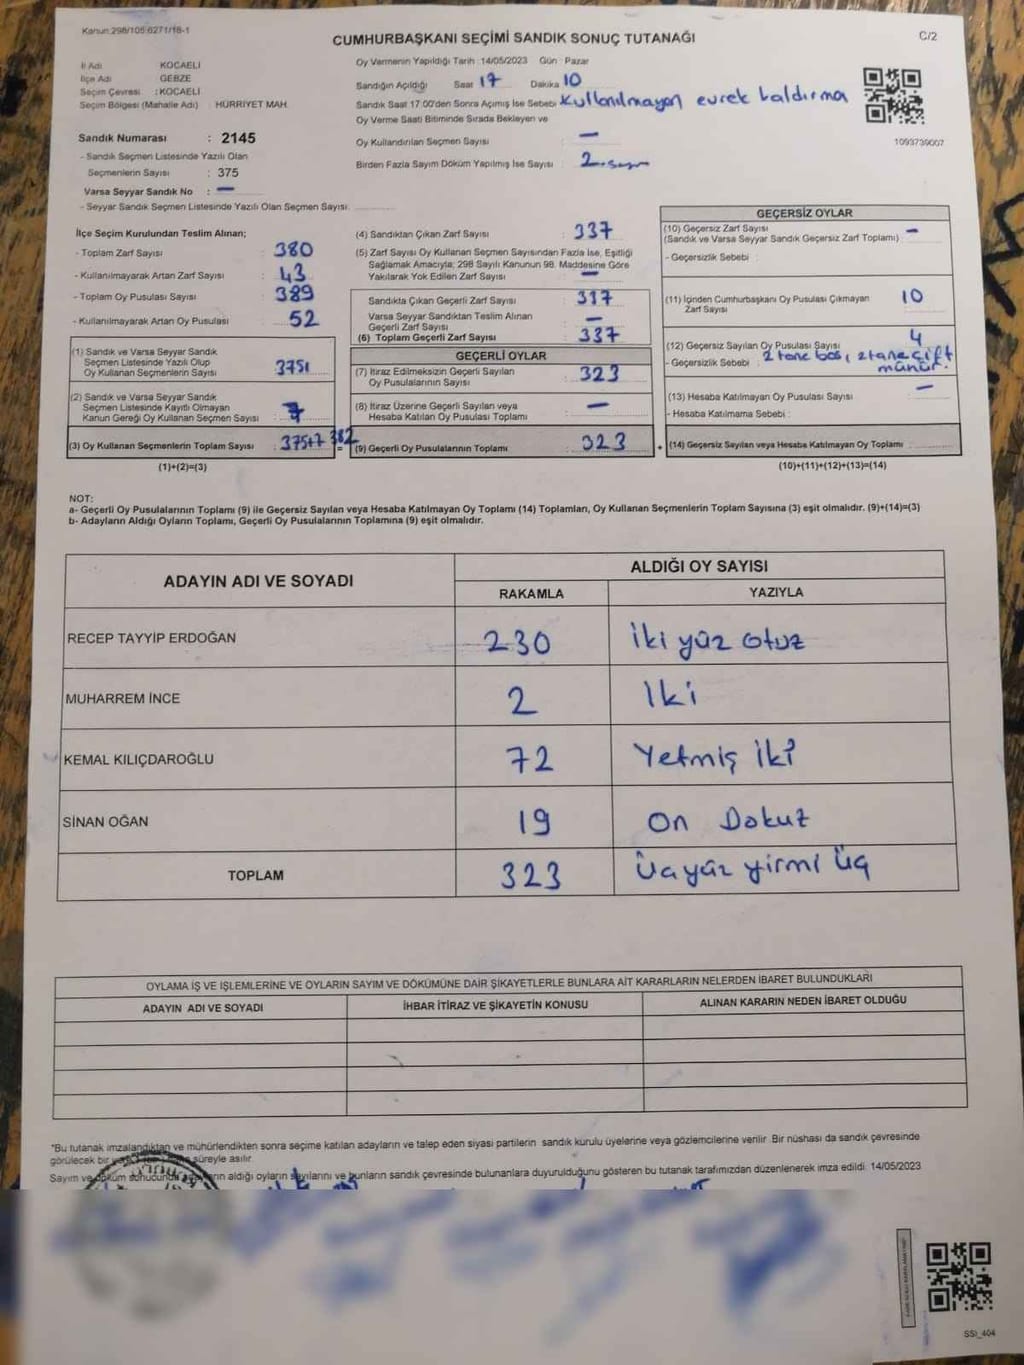 Kanun:298/105:6271/18-1
CUMHURBAŞKANI SEÇİMİ SANDIK SONUÇ TUTANAĞI
C/2
İl Adı KOCAELİ
İlçe Adı GEBZE
Seçim Çevresi : KOCAELİ
Seçim Bölgesi (Mahalle Adı) HÜRRİYET MAH.
Sandık Numarası : 2145
- Sandık Seçmen Listesinde Yazılı Olan
Seçmenlerin Sayısı : 375
Varsa Seyyar Sandık No : –
- Seyyar Sandık Seçmen Listesinde Yazılı Olan Seçmen Sayısı:
Oy Vermenin Yapıldığı Tarih :14/05/2023 Gün : Pazar
Sandığın Açıldığı Saat 17 Dakika 10
Sandık Saat 17:00'den Sonra Açımış İse Sebebi Kullanılmayan evrek kaldırma
Oy Verme Saati Bitiminde Sırada Bekleyen ve
Oy Kullandırılan Seçmen Sayısı : –
Birden Fazla Sayım Döküm Yapılmış İse Sayısı : 2. sayım
1093739007
İlçe Seçim Kurulundan Teslim Alınan;
- Toplam Zarf Sayısı : 380
- Kullanılmayarak Artan Zarf Sayısı : 43
- Toplam Oy Pusulası Sayısı : 389
- Kullanılmayarak Artan Oy Pusulası : 52
(1) Sandık ve Varsa Seyyar Sandık
Seçmen Listesinde Yazılı Olup
Oy Kullanan Seçmenlerin Sayısı : 375
(2) Sandık ve Varsa Seyyar Sandık
Seçmen Listesinde Kayıtlı Olmayan
Kanun Gereği Oy Kullanan Seçmen Sayısı : 7
(3) Oy Kullanan Seçmenlerin Toplam Sayısı : 375+7 382
(1)+(2)=(3)
(4) Sandıktan Çıkan Zarf Sayısı : 337
(5) Zarf Sayısı Oy Kullanan Seçmen Sayısından Fazla İse, Eşitliği
Sağlamak Amacıyla; 298 Sayılı Kanunun 98. Maddesine Göre
Yakılarak Yok Edilen Zarf Sayısı : –
Sandıkta Çıkan Geçerli Zarf Sayısı : 337
Varsa Seyyar Sandıktan Teslim Alınan
Geçerli Zarf Sayısı : –
(6) Toplam Geçerli Zarf Sayısı : 337
GEÇERLİ OYLAR
(7) İtiraz Edilmeksizin Geçerli Sayılan
Oy Pusulalarının Sayısı : 323
(8) İtiraz Üzerine Geçerli Sayılan veya
Hesaba Katılan Oy Pusulası Toplamı : –
= (9) Geçerli Oy Pusulalarının Toplamı : 323
GEÇERSİZ OYLAR
(10) Geçersiz Zarf Sayısı : –
(Sandık ve Varsa Seyyar Sandık Geçersiz Zarf Toplamı)
- Geçersizlik Sebebi :
(11) İçinden Cumhurbaşkanı Oy Pusulası Çıkmayan
Zarf Sayısı : 10
(12) Geçersiz Sayılan Oy Pusulası Sayısı : 4
- Geçersizlik Sebebi : 2 tane boş, 2 tane çift
mühür.
(13) Hesaba Katılmayan Oy Pusulası Sayısı : –
- Hesaba Katılmama Sebebi :
+ (14) Geçersiz Sayılan veya Hesaba Katılmayan Oy Toplamı :
(10)+(11)+(12)+(13)=(14)
NOT:
a- Geçerli Oy Pusulalarının Toplamı (9) ile Geçersiz Sayılan veya Hesaba Katılmayan Oy Toplamı (14) Toplamları, Oy Kullanan Seçmenlerin Toplam Sayısına (3) eşit olmalıdır. (9)+(14)=(3)
b- Adayların Aldığı Oyların Toplamı, Geçerli Oy Pusulalarının Toplamına (9) eşit olmalıdır.
ADAYIN ADI VE SOYADI
ALDIĞI OY SAYISI
RAKAMLA YAZIYLA
RECEP TAYYİP ERDOĞAN 230 İki yüz otuz
MUHARREM İNCE 2 İki
KEMAL KILIÇDAROĞLU 72 Yetmiş İki
SİNAN OĞAN 19 On Dokuz
TOPLAM 323 Üçyüz yirmi üç
OYLAMA İŞ VE İŞLEMLERİNE VE OYLARIN SAYIM VE DÖKÜMÜNE DAİR ŞİKAYETLERLE BUNLARA AİT KARARLARIN NELERDEN İBARET BULUNDUKLARI
ADAYIN ADI VE SOYADI İHBAR İTİRAZ VE ŞİKAYETİN KONUSU ALINAN KARARIN NEDEN İBARET OLDUĞU
*Bu tutanak imzalandıktan ve mühürlendikten sonra seçime katılan adayların ve talep eden siyasi partilerin sandık kurulu üyelerine veya gözlemcilerine verilir. Bir nüshası da sandık çevresinde
görülecek bir süreyle asılır.
Sayım ve döküm sonucunda aldığı oyların sayılarını ve bunların sandık çevresinde bulunanlara duyurulduğunu gösteren bu tutanak tarafımızdan düzenlenerek imza edildi. 14/05/2023
SSİ_404